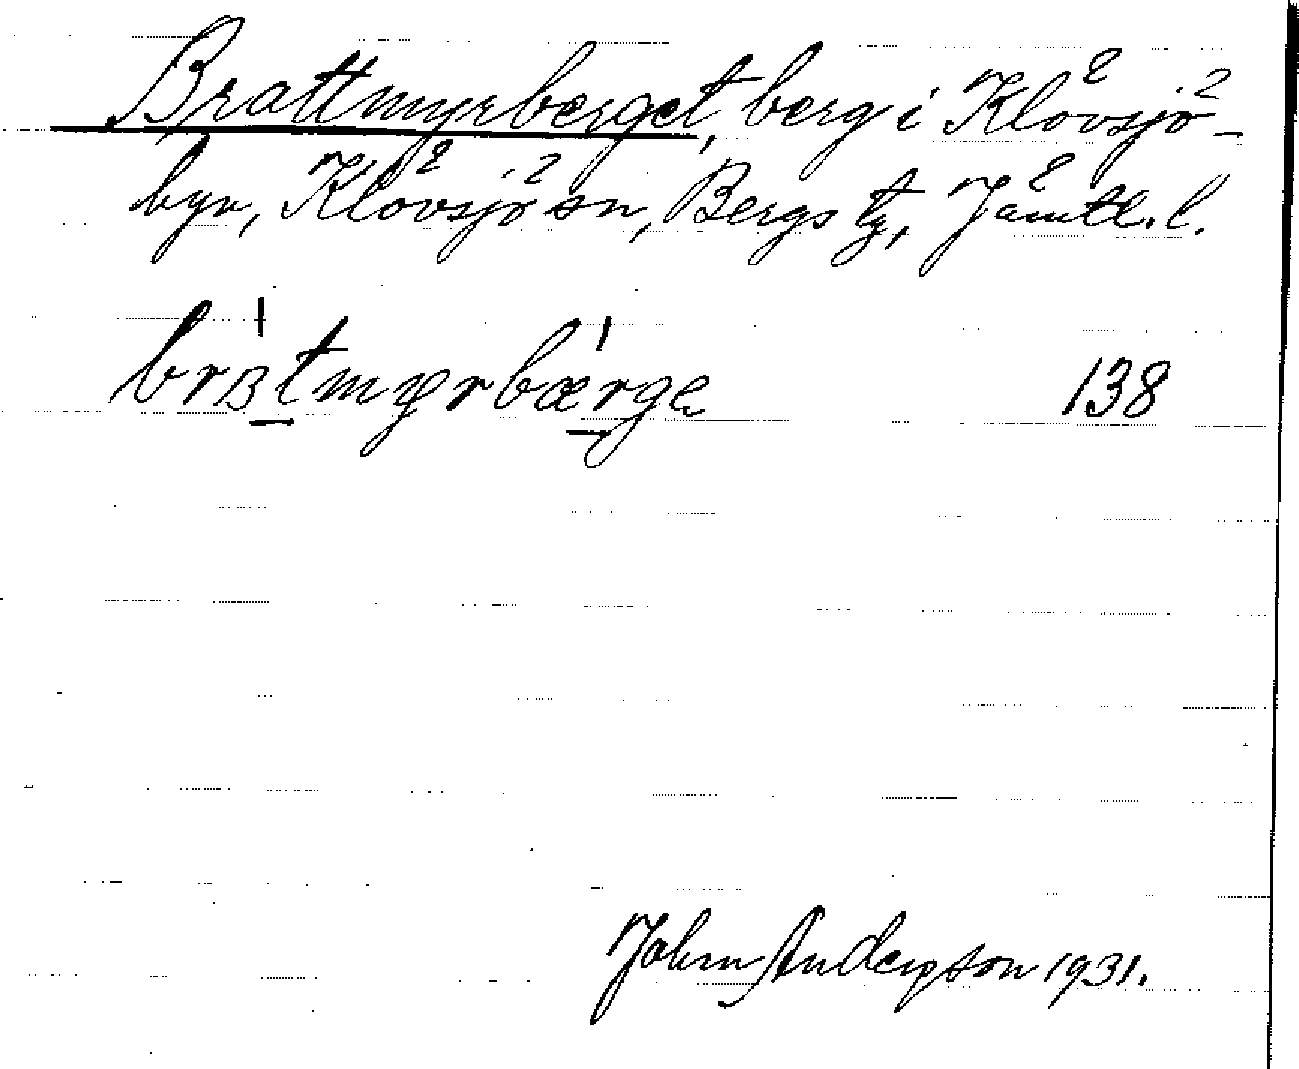 Brattmyrberget, berg i Klövsjö-
byn, Klövsjö sn, Bergs tg, Jämtl. l.
138
John Anderson 1931.